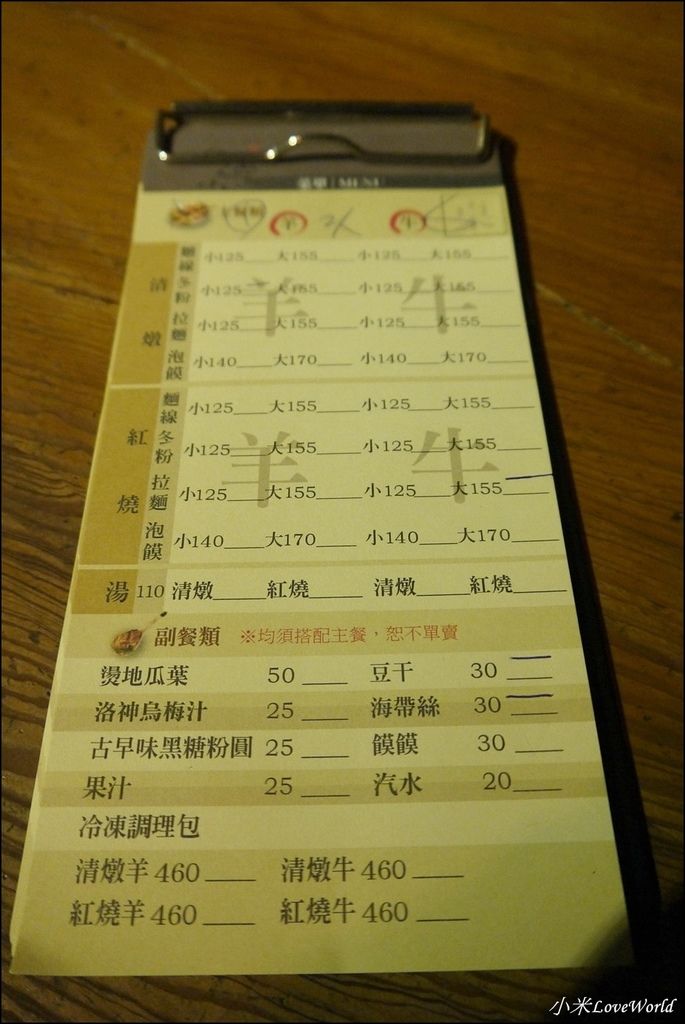 菜單 | MENU
羊 牛
清燉 羊 牛
麵線 小125___大155___ 小125___大155___
冬粉 小125___大155___ 小125___大155___
拉麵 小125___大155___ 小125___大155___
泡饃 小140___大170___ 小140___大170___
紅燒 羊 牛
麵線 小125___大155___ 小125___大155___
冬粉 小125___大155___ 小125___大155___
拉麵 小125___大155___ 小125___大155___
泡饃 小140___大170___ 小140___大170___
湯 110 清燉____紅燒____ 清燉____紅燒____
副餐類 ※均須搭配主餐，恕不單賣
燙地瓜葉 50 ____ 豆干 30 ____
洛神烏梅汁 25 ____ 海帶絲 30 ____
古早味黑糖粉圓 25 ____ 饃饃 30 ____
果汁 25 ____ 汽水 20____
冷凍調理包
清燉羊 460 ____ 清燉牛 460 ____
紅燒羊 460 ____ 紅燒牛 460 ____
小米LoveWorld